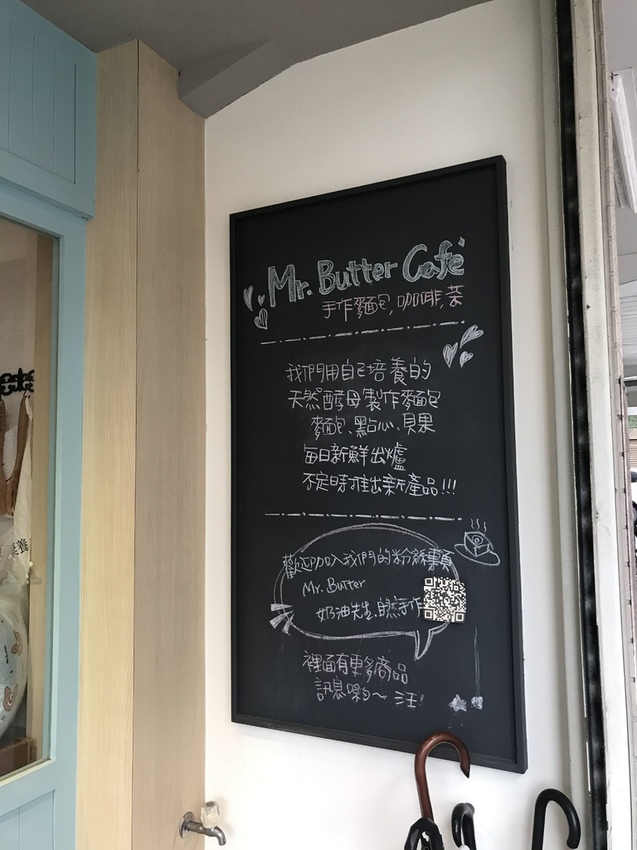 Mr. Butter Cafe
手作麵包,咖啡,茶
我們用自己培養的
天然酵母製作麵包
麵包、點心、貝果
每日新鮮出爐
不定時推出新產品!!!
歡迎加入我們的粉絲專頁
Mr. Butter
奶油先生的手作
裡面有更多商品
訊息喲~ 汪!
養